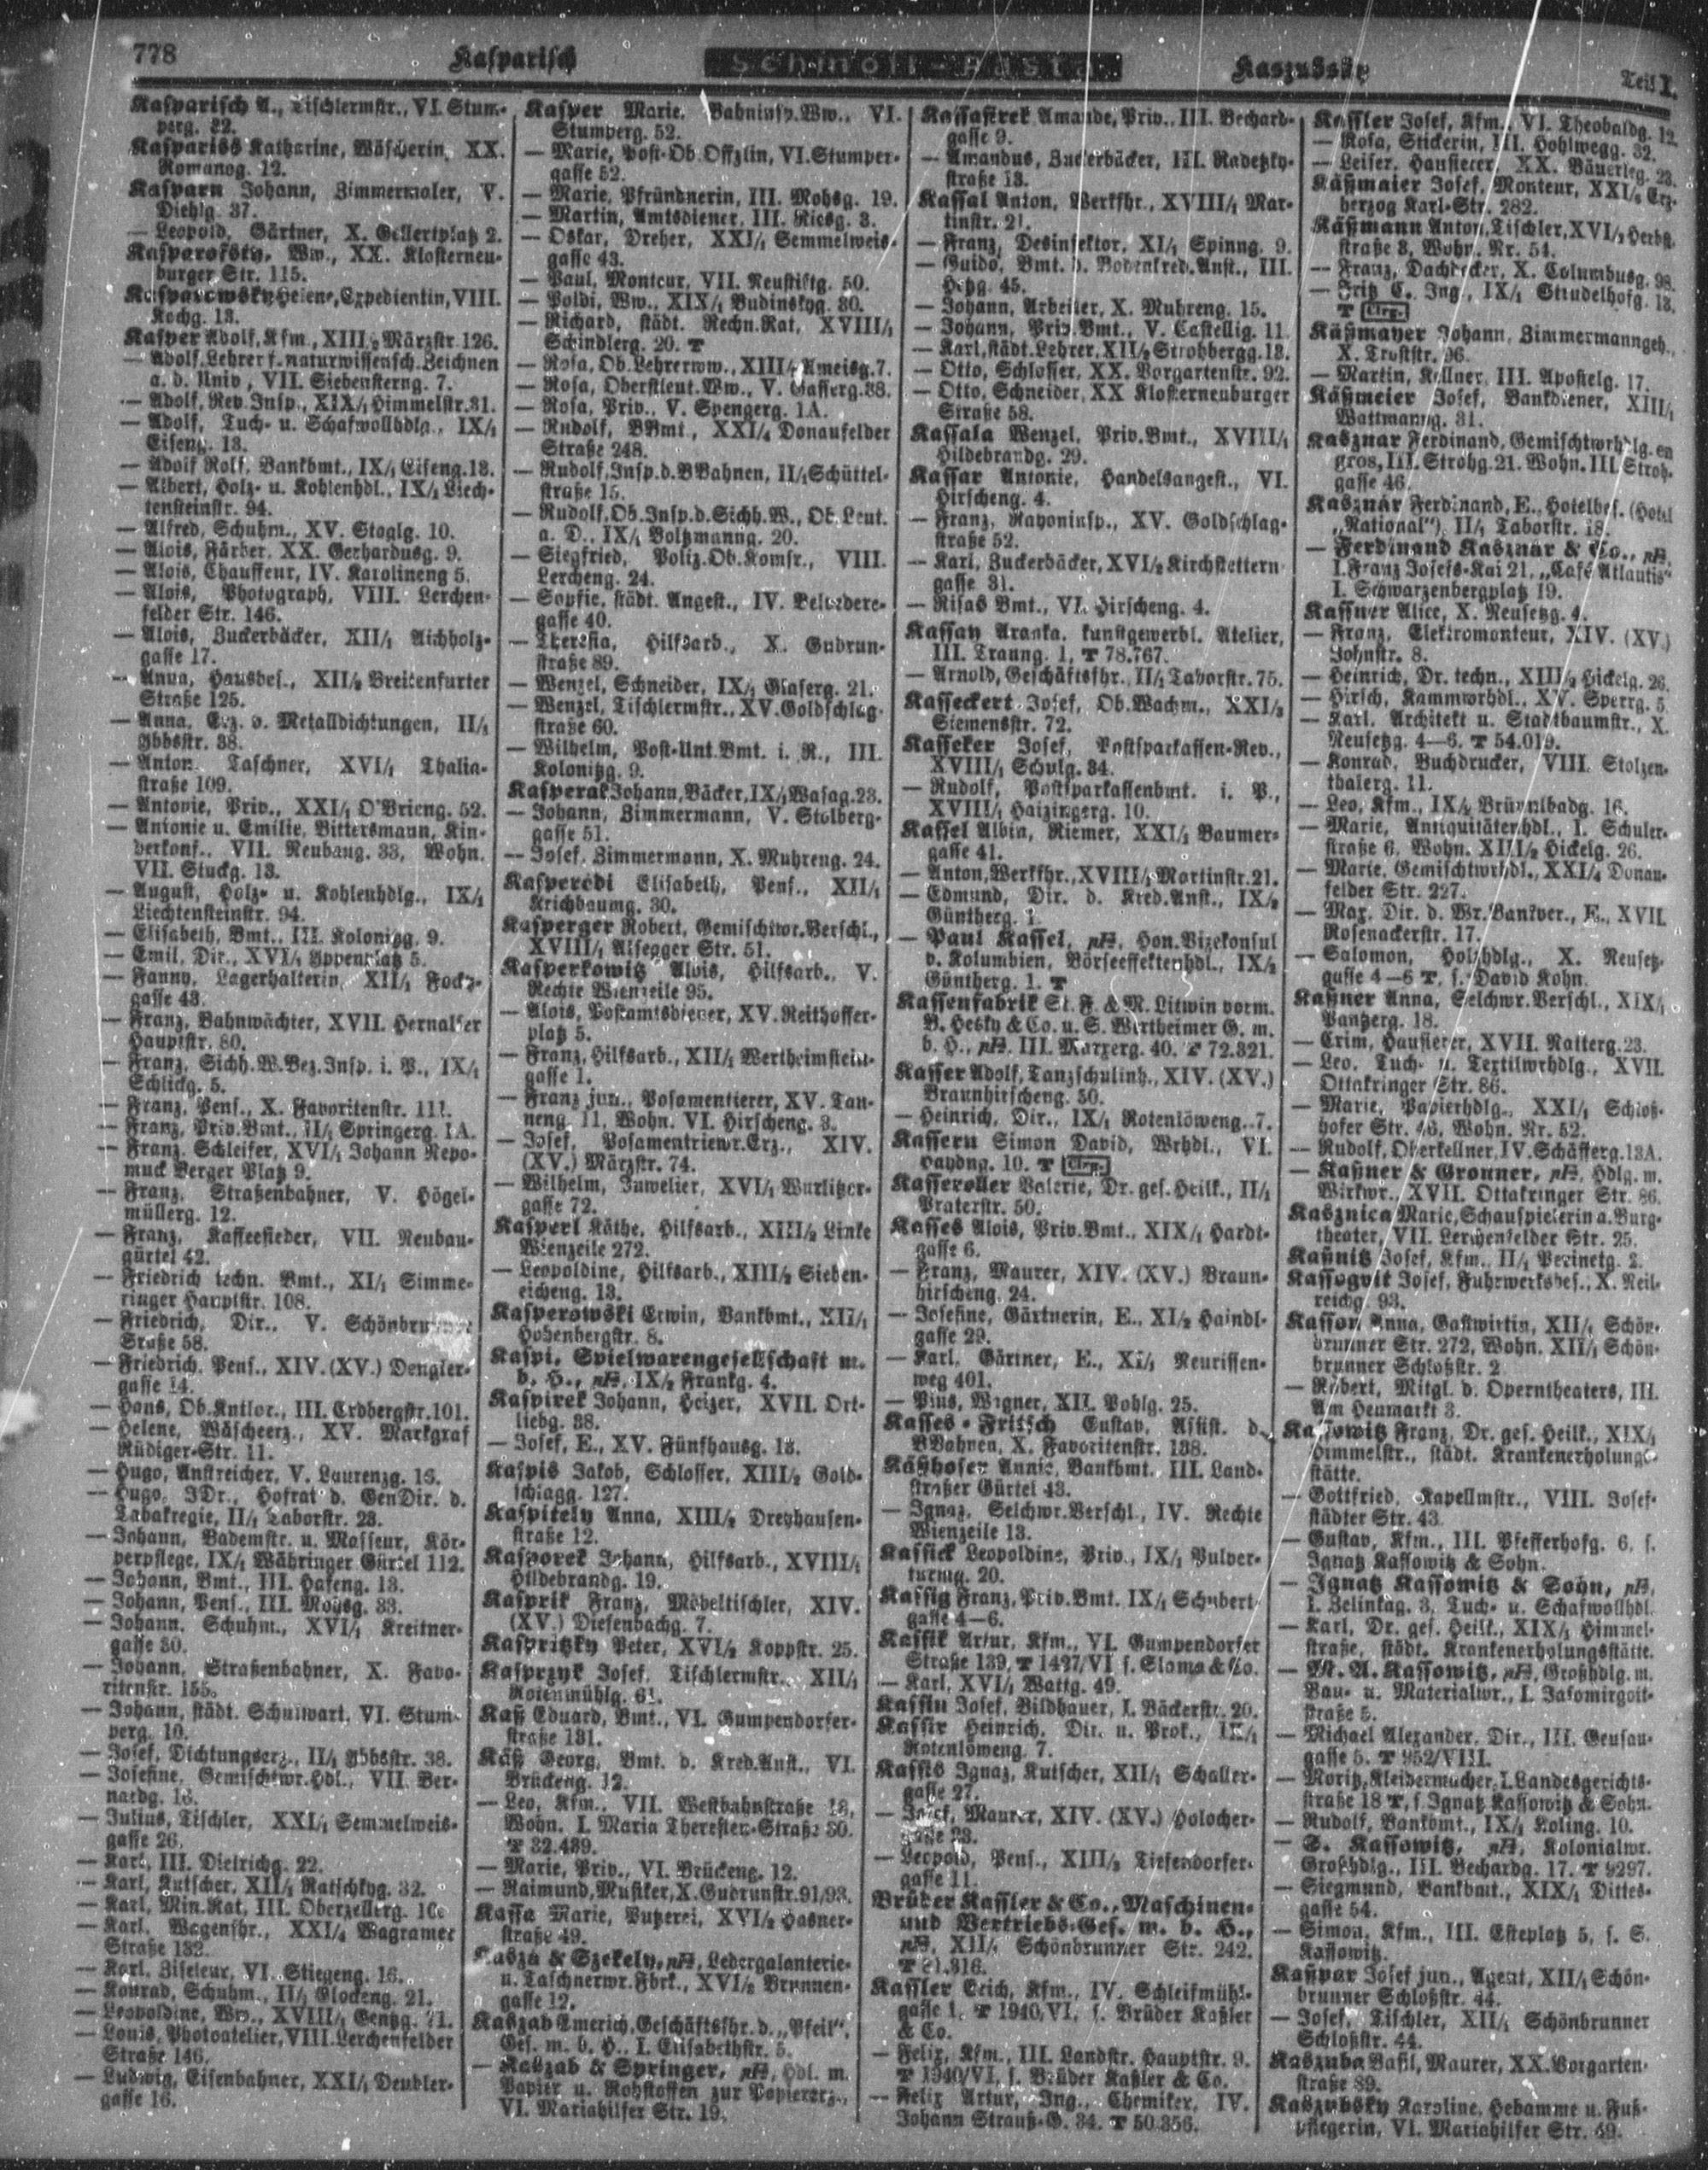 778
Kasparisch
Schmoll-Pasta
Kaszubsky
Teil I.
Kasparisch A., Tischlermstr., VI. Stum-
perg. 22.
Kaspariss Katharine, Wäscherin, XX.
Romanog. 12.
Kasparn Johann, Zimmermaler, V.
Diehlg. 37.
— Leopold, Gärtner, X. Gellertplatz 2.
Ww., XX. Klosterneu-
burger Str. 115.
Kasparowsky Helene, Expedientin, VIII.
Kochg. 13.
Kasper Adolf, Kfm., XIII/2 Märzstr. 126.
— Adolf, Lehrer f. naturwissensch. Zeichnen
a. d. Univ., VII. Siebensterng. 7.
— Adolf, Rev. Insp., XIX/1 Himmelstr. 31.
— Adolf, Tuch- u. Schafwollhdlg., IX/1
Eiseng. 13.
— Adolf Rolf, Bankbmt., IX/1 Eiseng. 13.
— Albert, Holz- u. Kohlenhdl., IX/1 Liech-
tensteinstr. 94.
— Alfred, Schuhm., XV. Stoglg. 10.
— Alois, Färber, XX. Gerhardusg. 9.
— Alois, Chauffeur, IV. Karolineng 5.
— Alois, Photograph, VIII. Lerchen-
felder Str. 146.
— Alois, Zuckerbäcker, XII/1 Aichholz-
gasse 17.
— Anna, Hausbes., XII/2 Breitenfurter
Straße 125.
— Anna, Erz. v. Metalldichtungen, II/1
Ybbsstr. 38.
— Anton, Taschner, XVI/1 Thalia-
straße 109.
— Antonie, Priv., XXI/1 O'Brieng. 52.
— Antonie u. Emilie, Bittersmann, Kin-
derkonf., VII. Neubaug. 33, Wohn.
VII. Stuckg. 13.
— August, Holz- u. Kohlenhdlg., IX/1
Liechtensteinstr. 94.
— Elisabeth, Bmt., III. Kolonitzg. 9.
— Emil, Dir., XVI/1 Yppenplatz 5.
— Fanny, Lagerhalterin, XII/1 Focky-
gasse 43.
— Franz, Bahnwächter, XVII. Hernalser
Hauptstr. 80.
— Franz, Sichh.W.Bez.Insp. i. P., IX/1
Schlickg. 5.
— Franz, Pens., X. Favoritenstr. 111.
— Franz, Priv.Bmt., II/1 Springerg. 1A.
— Franz, Schleifer, XVI/1 Johann Nepo-
muck Berger Platz 9.
— Franz, Straßenbahner, V. Högel-
müllerg. 12.
— Franz, Kaffeesieder, VII. Neubau-
gürtel 42.
— Friedrich techn. Bmt., XI/1 Simme-
ringer Hauptstr. 108.
— Friedrich, Dir., V.
Sraße 58.
— Friedrich, Pens., XIV. (XV.) Dengler-
gasse 14.
— Hans, Ob.Kntlor., III. Erdbergstr. 101.
— Helene, Wäscheerz., XV. Markgraf
Rüdiger-Str. 11.
— Hugo, Anstreicher, V. Laurenzg.
— Hugo, JDr., Hofrat d. GenDir. d.
Tabakregie, II/1 Taborstr. 23.
— Johann, Bademstr. u. Masseur, Kör-
perpflege, IX/1 Währinger Gürtel 112.
— Johann, Bmt., III. Hafeng. 13.
— Johann, Pens., III. Mohsg. 33.
— Johann, Schuhm., XVI/1 Kreitner-
gasse 30.
— Johann, Straßenbahner, X. Favo-
ritenstr. 155.
— Johann, städt. Schulwart, VI. Stum-
perg. 10.
— Josef, Dichtungserz., II/1 Ybbsstr. 38.
— Josefine, Gemischtwr.Hdl., VII. Ber-
nardg. 13.
— Julius, Tischler, XXI/1 Semmelweis-
gasse 26.
— Karl, III. Dietrichg. 22.
— Karl, Kutscher, XII/1 Ratschkyg. 32.
— Karl, Min.Rat, III. Oberzellerg.
— Karl, Wagenfhr., XXI/4 Wagramer
Straße 132.
— Karl, Ziseleur, VI. Stiegeng. 16.
— Konrad, Schuhm., II/1 Glockeng. 21.
— Leopoldine, Ww., XVIII/1 Gentzg. 71.
— Louis, Photoatelier, VIII. Lerchenfelder
Straße 146.
— Ludwig, Eisenbahner, XXI/1 Deubler-
gasse 16.
Kasper Marie, Bahninsp.Ww., VI.
Stumperg. 52.
— Marie, Post-Ob.Offzlin, VI. Stumper-
gasse 52.
— Marie, Pfründnerin, III. Mohsg. 19.
— Martin, Amtsdiener, III. Riesg. 3.
— Oskar, Dreher, XXI/1 Semmelweis-
gasse 43.
— Paul, Monteur, VII. Neustiftg. 50.
— Poldi, Ww., XIX/1 Budinskyg. 30.
— Richard, städt. Rechn.Rat, XVIII/1
Schindlerg. 20. T
— Rosa, Ob.Lehrerww., XIII/4 Ameisg. 7.
— Rosa, Oberstleut.Ww., V. Gasserg. 38.
— Rosa, Priv., V. Spengerg. 1A.
— Rudolf, BBmt., XXI/4 Donaufelder
Straße 248.
— Rudolf, Insp.d.BBahnen, II/1 Schüttel-
straße 15.
— Rudolf, Ob.Insp.d.Sichh.W., Ob.Leut.
a. D., IX/1 Boltzmanng. 20.
— Siegfried, Poliz.Ob.Komsr., VIII.
Lercheng. 24.
— Sopfie, städt. Angest., IV. Belvedere-
gasse 40.
— Theresia, Hilfsarb., X. Gudrun-
straße 89.
— Wenzel, Schneider, IX/1 Glaserg. 21.
— Wenzel, Tischlermstr., XV. Goldschlag-
straße 60.
— Wilhelm, Post-Unt.Bmt. i. R., III.
Kolonitzg. 9.
Kasperak Johann, Bäcker, IX/1 Wasag. 23.
— Johann, Zimmermann, V. Stolberg-
gasse 51.
— Josef, Zimmermann, X. Muhreng. 24.
Kasperedi Elisabeth, Pens., XII/1
Krichbaumg. 30.
Kasperger Robert, Gemischtwr.Verschl.,
XVIII/1 Alsegger Str. 51.
Kasperkowitz Alois, Hilfsarb., V.
Rechte Wienzeile 95.
— Alois, Postamtsdiener, XV. Reithoffer-
platz 5.
— Franz, Hilfsarb., XII/1 Wertheimstein-
gasse 1.
— Franz jun., Posamentierer, XV. Tan-
neng. 11, Wohn. VI. Hirscheng. 3.
— Josef, Posamentrierwr.Erz., XIV.
(XV.) Märzstr. 74.
— Wilhelm, Juwelier, XVI/1 Wurlitzer-
gasse 72.
Kasperl Käthe, Hilfsarb., XIII/2 Linke
Wienzeile 272.
— Leopoldine, Hilfsarb., XIII/2 Sieben-
eicheng. 13.
Kasperowski Erwin, Bankbmt., XII/1
Hohenbergstr. 8.
Kaspi, Spielwarengesellschaft m.
b. H., pH, IX/2 Frankg. 4.
Kaspirek Johann, Heizer, XVII. Ort-
liebg. 38.
— Josef, E., XV. Fünfhausg. 13.
Kaspis Jakob, Schlosser, XIII/2 Gold-
schlagg. 127.
Kaspitely Anna, XIII/2 Dreyhausen-
straße 12.
Kasporek Johann, Hilfsarb., XVIII/1
Hildebrandg. 19.
Kasprik Franz, Möbeltischler, XIV.
(XV.) Diefenbachg. 7.
Kaspritzky Peter, XVI/2 Koppstr. 25.
Kasprzyk Josef, Tischlermstr., XII/1
Rotenmühlg. 61.
Kaß Eduard, Bmt., VI. Gumpendorfer-
straße 131.
Käß Georg, Bmt. d. Kred.Anst., VI.
Brückeng. 12.
— Leo, Kfm., VII. Westbahnstraße 18,
Wohn. I. Maria Theresien-Straße 30.
T 32.439.
— Marie, Priv., VI. Brückeng. 12.
— Raimund, Musiker, X. Gudrunstr. 91/93.
Kassa Marie, Putzerei, XVI/2 Hasner-
straße 49.
Kasza & Szekely, pH, Ledergalanterie-
u. Taschnerwr.Fbrk., XVI/2 Brunnen-
gasse 12.
Kaszab Emerich, Geschäftsfhr. d. „Pfeil",
Ges. m. b. H., I. Elisabethstr. 5.
— Kaszab & Springer, pH, Hdl. m.
Papier u. Rohstoffen zur Papiererz.,
VI. Mariahilfer Str. 19.
Kassastrek Amande, Priv., III. Bechard-
gasse 9.
— Amandus, Zuckerbäcker, III. Radetzky-
straße 13.
Kassal Anton, Werkfhr., XVIII/1 Mar-
tinstr. 21.
— Franz, Desinfektor, XI/1 Spinng. 9.
— Guido, Bmt. d. Bodenkred.Anst., III.
Hetzg. 45.
— Johann, Arbeiter, X. Muhreng. 15.
— Johann, Priv.Bmt., V. Castellig. 11.
— Karl, städt.Lehrer, XII/2 Strohbergg. 13.
— Otto, Schlosser, XX. Vorgartenstr. 92.
— Otto, Schneider, XX Klosterneuburger
Straße 58.
Kassala Wenzel, Priv.Bmt., XVIII/1
Hildebrandg. 29.
Kassar Antonie, Handelsangest., VI.
Hirscheng. 4.
— Franz, Rayoninsp., XV. Goldschlag-
straße 52.
— Karl, Zuckerbäcker, XVI/2 Kirchstettern
gasse 31.
— Risas Bmt., VI. Hirscheng. 4.
Kassay Aranka, kunstgewerbl. Atelier,
III. Traung. 1, T 78.767.
— Arnold, Geschäftsfhr., II/1 Taborstr. 75.
Kasseckert Josef, Ob.Wachm., XXI/3
Siemensstr. 72.
Kasseker Josef, Postsparkassen-Rev.,
XVIII/1 Schulg. 34.
— Rudolf, Postsparkassenbmt. i. P.,
XVIII/1 Haizingerg. 10.
Kassel Albin, Riemer, XXI/3 Baumer-
gasse 41.
— Anton, Werkfhr., XVIII/1 Martinstr. 21.
— Edmund, Dir. d. Kred.Anst., IX/2
Güntherg. 1.
— Paul Kassel, pH, Hon.Vizekonsul
v. Kolumbien, Börseeffektenhdl., IX/2
Güntherg. 1. T
Kassenfabrik St. F. & N. Litwin vorm.
B. Hesky & Co. u. S. Wertheimer G. m.
b. H., pH, III. Marxerg. 40. T 72.321.
Kasser Adolf, Tanzschulinh., XIV. (XV.)
Braunhirscheng. 50.
— Heinrich, Dir., IX/1 Rotenlöweng. 7.
Kassern Simon David, Wrhdl., VI.
Haydng. 10. T Clrg.
Kasseroller Valerie, Dr. ges. Heilk., II/1
Praterstr. 50.
Kasses Alois, Priv.Bmt., XIX/1 Hardt-
gasse 6.
— Franz, Maurer, XIV. (XV.) Braun-
hirscheng. 24.
— Josefine, Gärtnerin, E., XI/2 Haindl-
gasse 29.
— Karl, Gärtner, E., XI/1 Neurissen-
weg 401.
— Pius, Wagner, XII. Pohlg. 25.
Kasses-Fritsch Gustav, Assist. d.
BBahnen, X. Favoritenstr. 138.
Käßhofer Annie, Bankbmt. III. Land-
straßer Gürtel 43.
— Ignaz, Selchwr.Verschl., IV. Rechte
Wienzeile 13.
Kassick Leopoldine, Priv., IX/1 Pulver-
turmg. 20.
Kassig Franz, Priv.Bmt. IX/1 Schubert-
gasse 4—6.
Kassik Artur, Kfm., VI. Gumpendorfer
Straße 139, T 1427/VI s. Sloma & Co.
— Karl, XVI/1 Wattg. 49.
Kassin Josef, Bildhauer, I. Bäckerstr. 20.
Kassir Heinrich, Dir. u. Prok., IX/1
Rotenlöweng. 7.
Kassis Ignaz, Kutscher, XII/1 Schaller-
gasse 27.
— Josef, Maurer, XIV. (XV.) Holocher-
gasse 23.
— Leopold, Pens., XIII/2 Tiefendorfer-
gasse 11.
Brüder Kassler & Co., Maschinen-
und Vertriebs-Ges. m. b. H.,
pH, XII/1 Schönbrunner Str. 242.
T 81.316.
Kassler Erich, Kfm., IV. Schleifmühl-
gasse 1. T 1940/VI, s. Brüder Kaßler
& Co.
— Felix, Kfm., III. Landstr. Hauptstr. 9.
T 1940/VI, s. Brüder Kaßler & Co.
— Felix Artur, Ing., Chemiker, IV.
Johann Strauß-G. 34. T 50.356.
Kassler Josef, Kfm., VI. Theobaldg. 12.
— Rosa, Stickerin, III. Hohlwegg. 32.
— Leiser, Hausierer, XX. Bäuerleg. 23.
Käßmaier Josef, Monteur, XXI/5 Erz-
herzog Karl-Str. 282.
Käßmann Anton, Tischler, XVI/2 Herbst-
straße 3, Wohn. Nr. 54.
— Franz, Dachdecker, X. Columbusg. 98.
— Fritz C. Ing., IX/1 Strudelhofg. 13.
T Clrg.
Käßmayer Johann, Zimmermanngeh.,
X. Troststr. 96.
— Martin, Kellner, III. Apostelg. 17.
Käßmeier Josef, Bankdiener, XIII/1
Wattmanng. 31.
Kasznar Ferdinand, Gemischtwrhdlg. en
gros, III. Strohg. 21. Wohn. III. Stroh-
gasse 46.
Kasznár Ferdinand, E., Hotelbes. (Hotel
„National"), II/1 Taborstr. 18.
— Ferdinand Kasznár & Co., pH,
I. Franz Josefs-Kai 21, „Café Atlantis"
I. Schwarzenbergplatz 19.
Kassner Alice, X. Neusetzg. 4.
— Franz, Elektromonteur, XIV. (XV.)
Johnstr. 8.
— Heinrich, Dr. techn., XIII/2 Hickelg. 26.
— Hirsch, Kammwrhdl., XV. Sperrg. 5
— Karl, Architekt u. Stadtbaumstr., X.
Neusetzg. 4—6. T 54.019.
— Konrad, Buchdrucker, VIII. Stolzen-
thalerg. 11.
— Leo, Kfm., IX/2 Brünnlbadg. 16.
— Marie, Antiquitätenhdl., I. Schuler-
straße 6, Wohn. XIII/2 Hickelg. 26.
— Marie, Gemischtwrhdl., XXI/4 Donau-
felder Str. 227.
— Max, Dir. d. Wr.Bankver., E., XVII.
Rosenackerstr. 17.
— Salomon, Holzhdlg., X. Neusetz-
gasse 4—6 T, s. David Kohn.
Kaßner Anna, Selchwr.Verschl., XIX/1
Pantzerg. 18.
— Crim, Hausierer, XVII. Natterg. 23.
— Leo, Tuch- u. Textilwrhdlg., XVII.
Ottakringer Str. 86.
— Marie, Papierhdlg., XXI/1 Schloß-
hofer Str. 46, Wohn. Nr. 52.
— Rudolf, Oberkellner, IV. Schäfferg. 13A.
— Kaßner & Gronner, pH, Hdlg. m.
Wirkwr., XVII. Ottakringer Str. 86.
Kasznica Marie, Schauspielerin a. Burg-
theater, VII. Lerchenfelder Str. 25.
Kaßnitz Josef, Kfm., II/1 Perinetg. 2.
Kassogvit Josef, Fuhrwerksbes., X. Neil-
reichg 93.
Kasson Anna, Gastwirtin, XII/1 Schön-
brunner Str. 272, Wohn. XII/1 Schön-
brunner Schloßstr. 2
— Robert, Mitgl. d. Operntheaters, III.
Am Heumarkt 3.
Kassowitz Franz, Dr. ges. Heilk., XIX/1
Himmelstr., städt. Krankenerholungs-
stätte.
— Gottfried, Kapellmstr., VIII. Josef-
städter Str. 43.
— Gustav, Kfm., III. Pfefferhofg. 6, s.
Ignatz Kassowitz & Sohn.
— Ignatz Kassowitz & Sohn, pH,
I. Zelinkag. 3, Tuch- u. Schafwollhdl.
— Karl, Dr. ges. Heilk., XIX/1 Himmel-
straße, städt. Krankenerholungsstätte.
— M. A. Kassowitz, pH, Großhdlg. m.
Bau- u. Materialwr., I. Jasomirgott-
straße 5.
— Michael Alexander, Dir., III. Geusau-
gasse 5. T 952/VIII.
— Moritz, Kleidermacher, I. Landesgerichts-
straße 18 T, s. Ignatz Kassowitz & Sohn.
— Rudolf, Bankbmt., IX/1 Koling. 10.
— S. Kassowitz, pH, Kolonialwr.
Großhdlg., III. Bechardg. 17. T 9297.
— Siegmund, Bankbmt., XIX/1 Dittes-
gasse 54.
— Simon, Kfm., III. Esteplatz 5, s. S.
Kassowitz.
Kaßpar Josef jun., Agent, XII/1 Schön-
brunner Schloßstr. 44.
— Josef, Tischler, XII/1 Schönbrunner
Schloßstr. 44.
Kaszuba Basil, Maurer, XX. Vorgarten-
straße 89.
Kaszubsky Karoline, Hebamme u. Fuß-
pflegerin, VI. Mariahilfer Str. 49.